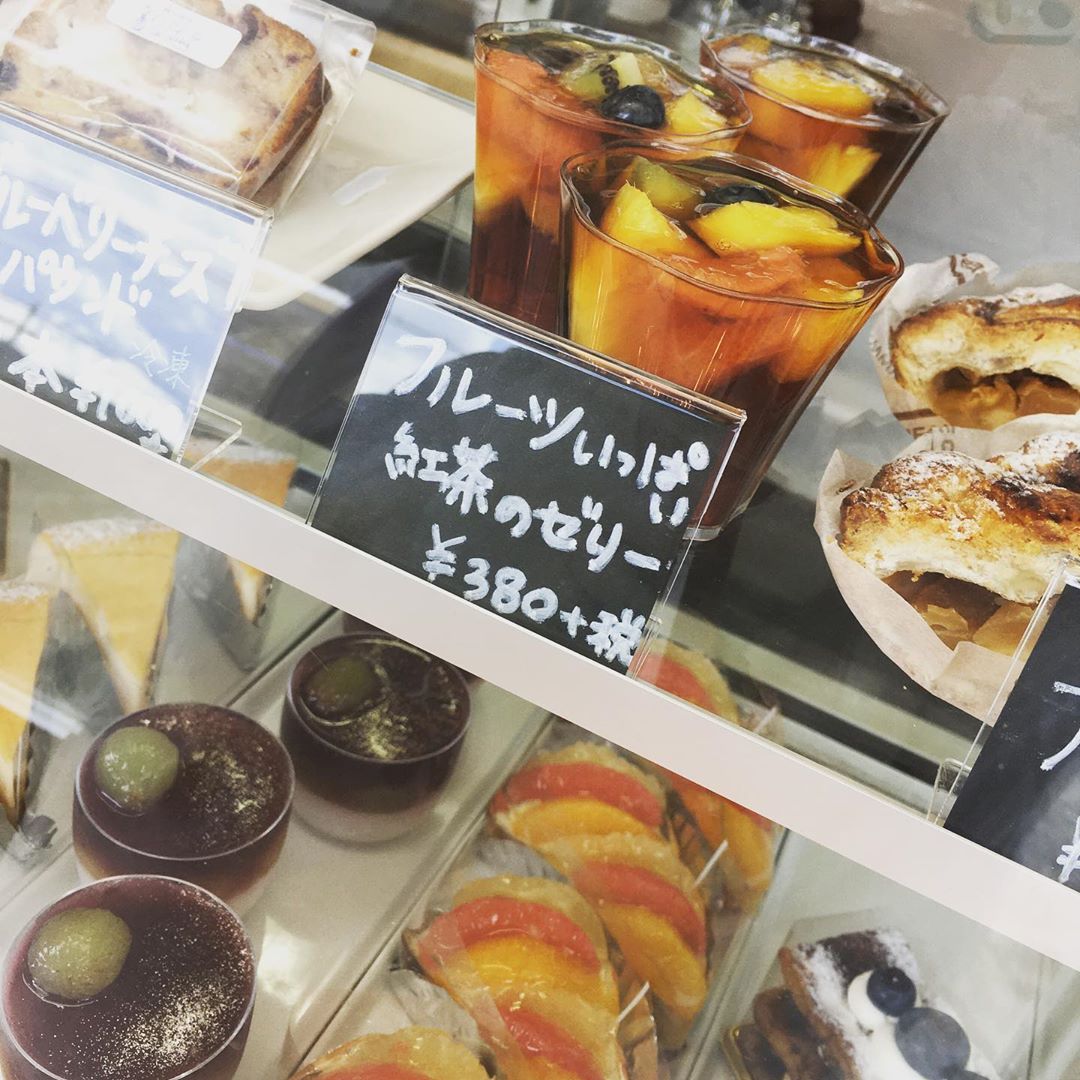 ルーベリーチーズ
パウンド
冷凍
本
フルーツいっぱい
紅茶のゼリー
¥380+税